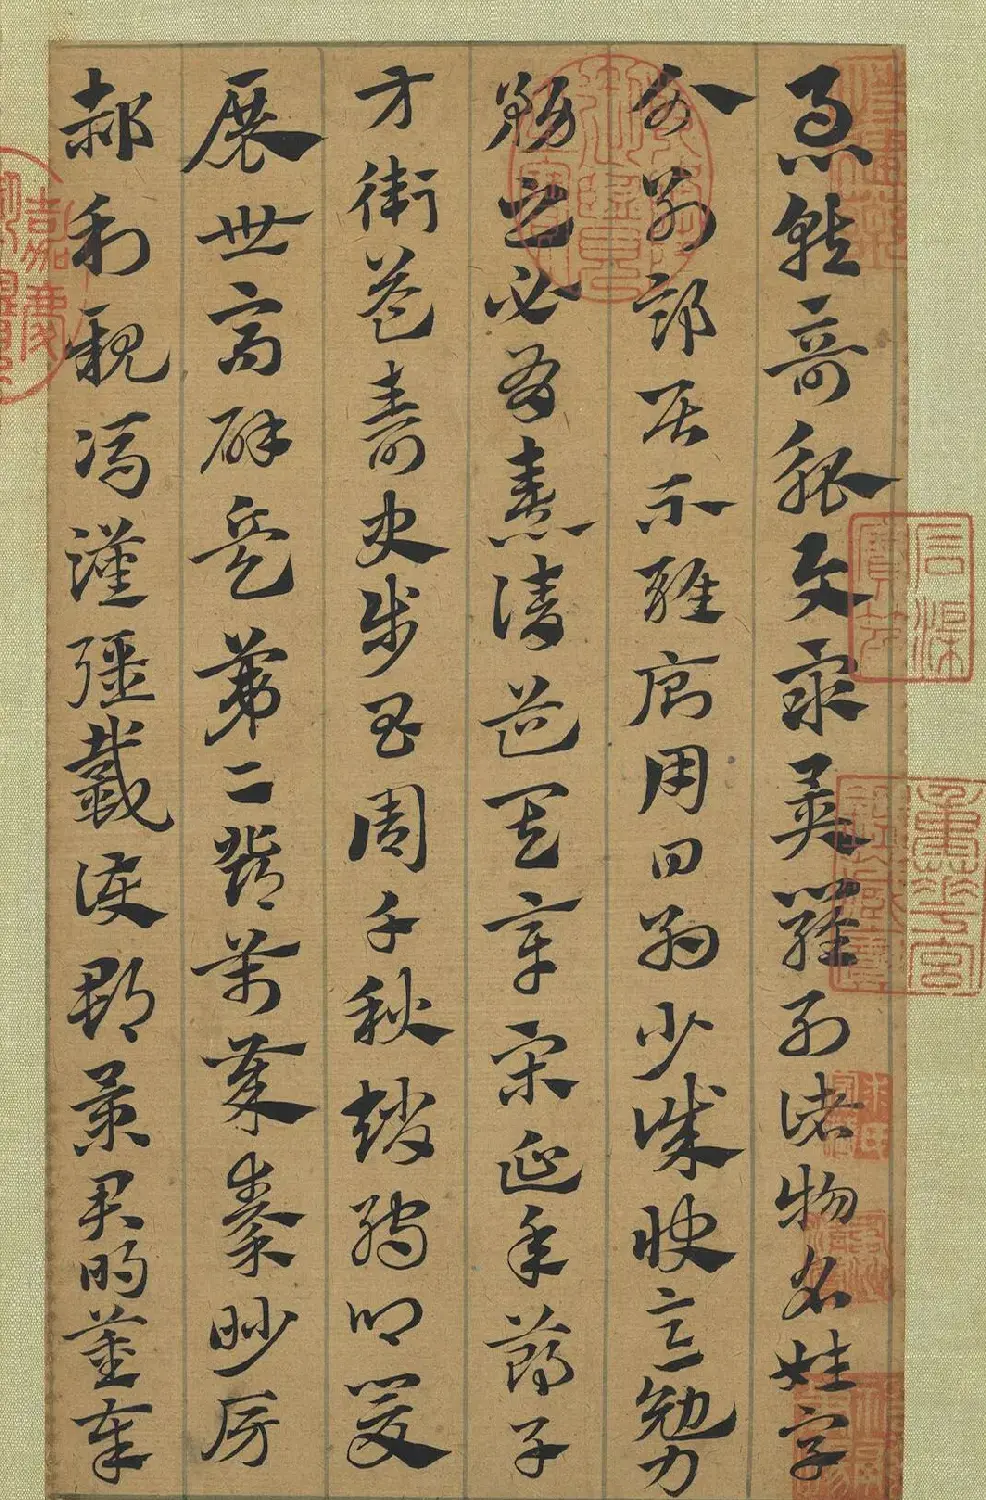 急就奇觚與衆異羅列諸物名姓字
分別部居不雜廁用日約少誠快意勉力
務之必有憙請道其章宋延年鄭子
方衛益壽史步昌周千秋趙孺卿爰
展世高辟兵第二鄧萬歲秦眇房
郝利親馮漢彊戴護郡景君明董奉
石渠寶笈
重華宮鑑藏寶
嘉慶